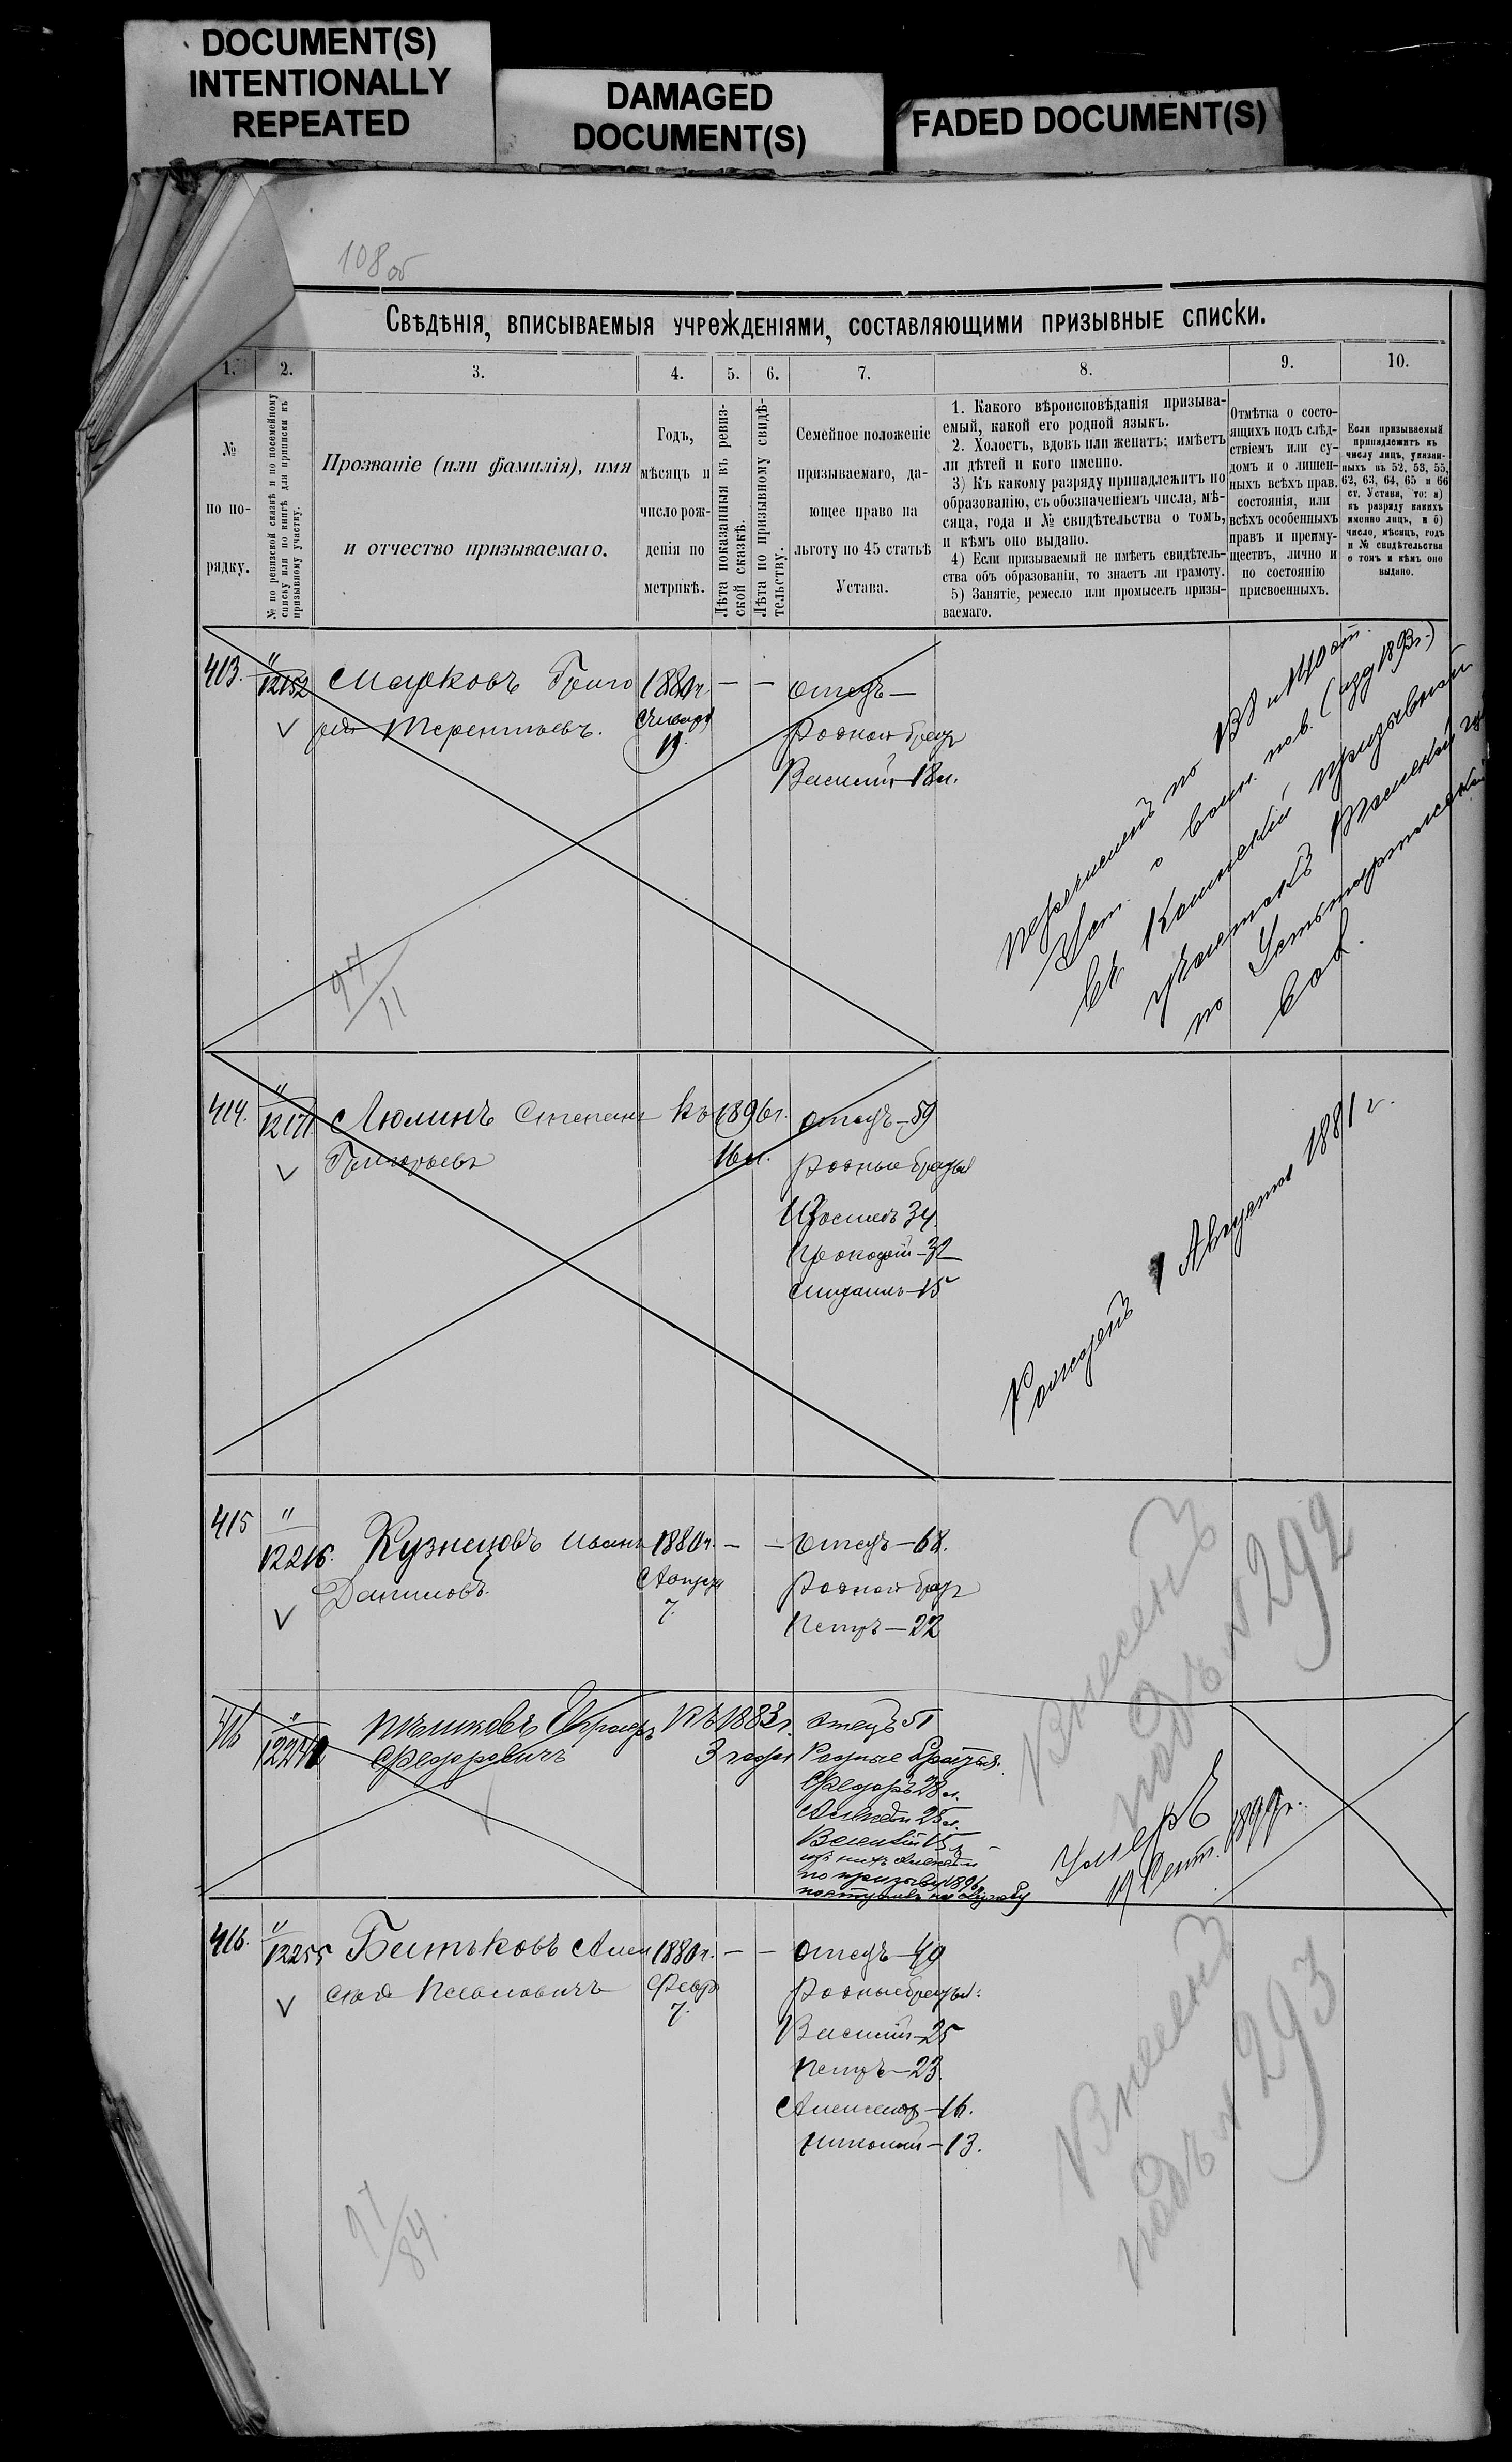 DOCUMENT(S)
INTENTIONALLY
REPEATED
DAMAGED
DOCUMENT(S)
FADED DOCUMENT(S)
108 об
Свѣдѣнія, вписываемыя учрежденіями, составляющими призывные списки.
1.
2.
3.
4.
5.
6.
7.
8.
9.
10.
№
по по-
рядку.
№ по ревизской сказкѣ и по посемейному
списку или по книгѣ для приписки къ
призывному участку.
Прозваніе (или фамилія), имя
и отчество призываемаго.
Годъ,
мѣсяцъ и
число рож-
денія по
метрикѣ.
Лѣта показанныя въ ревиз-
ской сказкѣ.
Лѣта по призывному свидѣ-
тельству.
Семейное положеніе
призываемаго, да-
ющее право на
льготу по 45 статьѣ
Устава.
1. Какого вѣроисповѣданія призыва-
емый, какой его родной языкъ.
2. Холостъ, вдовъ или женатъ; имѣетъ
ли дѣтей и кого именно.
3) Къ какому разряду принадлежитъ по
образованію, съ обозначеніемъ числа, мѣ-
сяца, года и № свидѣтельства о томъ,
и кѣмъ оно выдано.
4) Если призываемый не имѣетъ свидѣтель-
ства объ образованіи, то знаетъ ли грамоту.
5) Занятіе, ремесло или промыселъ призы-
ваемаго.
Отмѣтка о состо-
ящихъ подъ слѣд-
ствіемъ или су-
домъ и о лишен-
ныхъ всѣхъ прав.
состоянія, или
всѣхъ особенныхъ
правъ и преиму-
ществъ, лично и
по состоянію
присвоенныхъ.
Если призываемый
принадлежитъ къ
числу лицъ, указан-
ныхъ въ 52, 53, 55,
62, 63, 64, 65 и 66
ст. Устава, то: а)
къ разряду какихъ
именно лицъ, и б)
число, мѣсяцъ, годъ
и № свидѣтельства
о томъ и кѣмъ оно
выдано.
413.
"
12152
Марковъ Григо
рій Терентьевъ.
1880г.
Января
отецъ —
Родной братъ
Василій—18л.
Перечисленъ по
Уст. о воин. пов. (изд 1893г.)
въ Каинскій призывной
участокъ Томской
по
вол.
414.
"
12171
Люлинъ Степанъ
Григорьевъ
къ 1896г.
16л.
отецъ—59
Родные братья
34
Прокофій—32
Михаилъ—15
Рожденъ 1 Августа 1881 г.
415
"
12216.
Кузнецовъ Иванъ
Даниловъ.
1880г. — —
7.
отецъ—68.
Родной братъ
Петръ—22
Внесенъ
подъ № 292
"
Федоровичъ
къ 1883г.
3 года
отецъ 51
Родные братья.
Федоръ 28 л.
Алексѣй 25л.
15
изъ нихъ Алексѣй
по призыву 1896г.
поступилъ на службу
Умеръ
19 Сент. 1899г.
416.
"
12255
Битьковъ Алек
сѣй Ивановичъ
1880г. — —
Февр.
7.
отецъ—49
Родные братья:
Василій—25
Петръ—23.
Александр—16.
Николай—13.
Внесенъ
подъ № 293
97
84